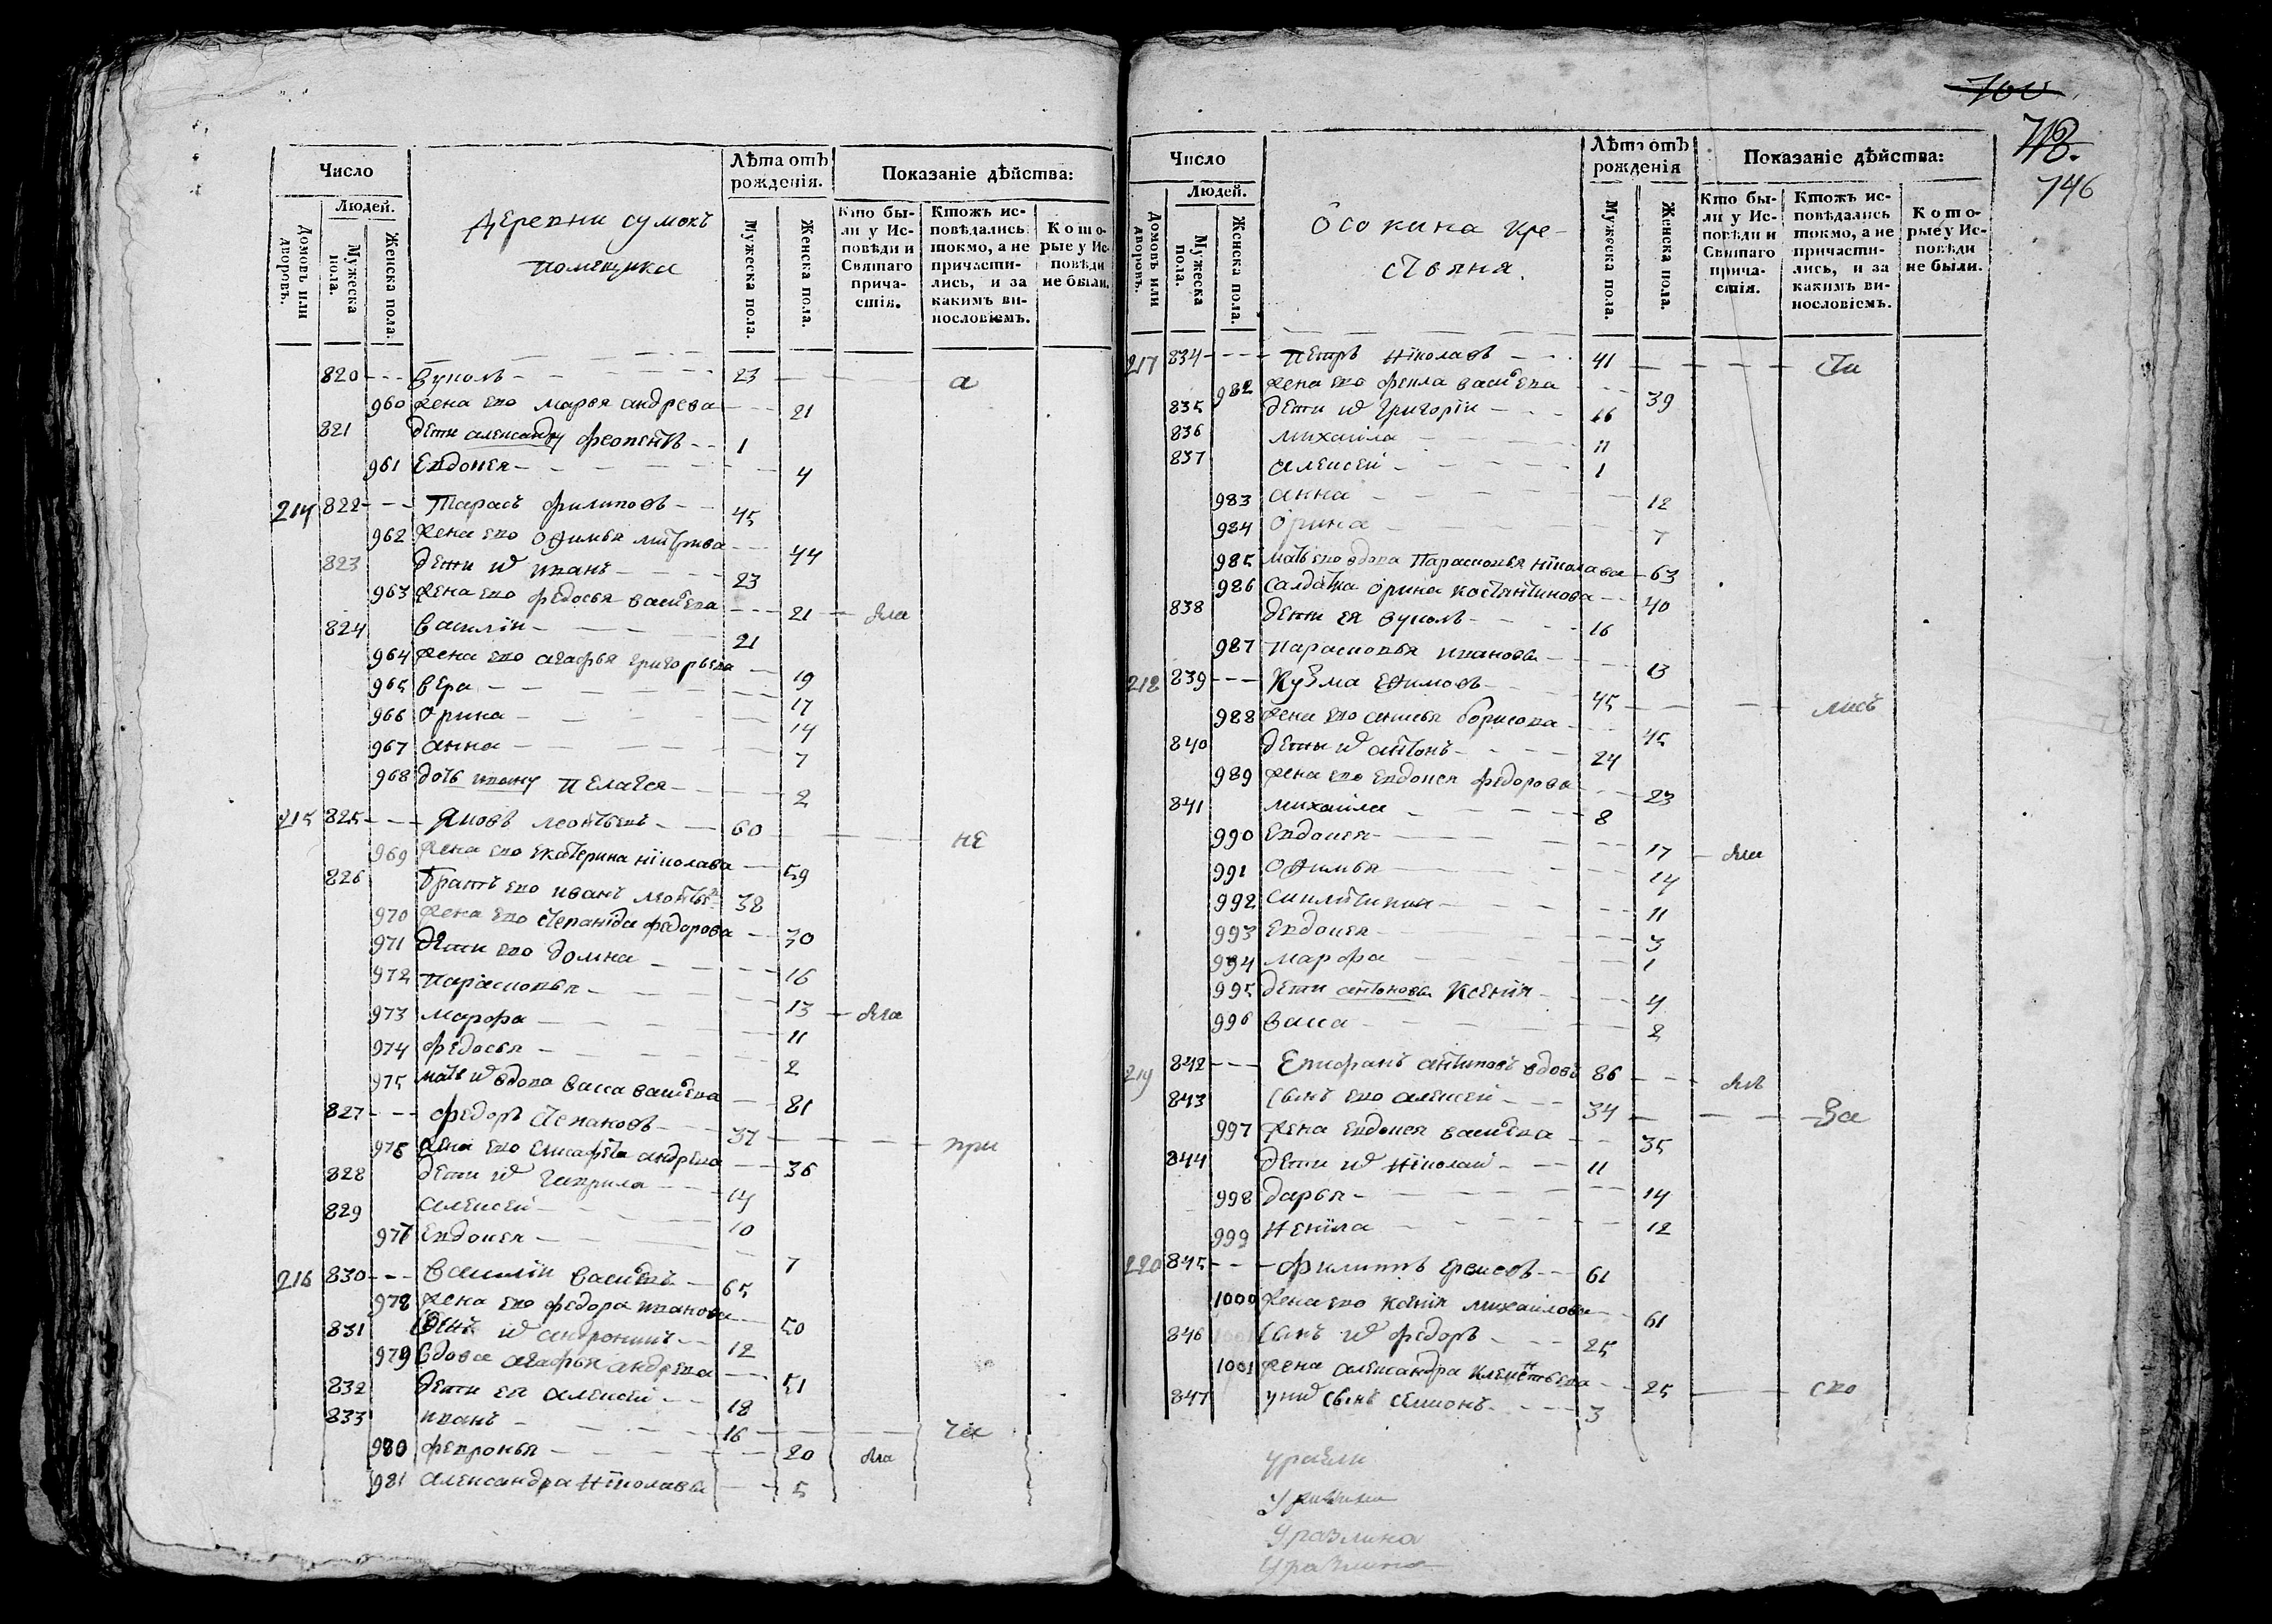 Число
Людей.
Домовъ или дворовъ.
Мужеска пола.
Женска пола.
Деревни сумокъ
помещика
Лѣта отъ
рожденія.
Мужеска пола.
Женска пола.
Показаніе дѣйства:
Кто бы-
ли у Ис-
повѣди и
Святаго
прича-
стія.
Ктожъ ис-
повѣдались
токмо, а не
причасти-
лись, и за
какимъ ви-
нословіемъ.
Кото-
рые у Ис-
повѣди
не были.
820 - - - вуколъ - 23 - а
960 жена ево марья андрева - 21
821 дети александру феопентъ - 1
961 Евдокея - 4
214 822 - - - Тарасъ филиповъ - 45
962 жена ево офимья митрива - 44
823 дети их иванъ - 23
963 жена ево федосья васильева - 21 - яла
824 василіи - 21
964 жена ево агафья григорьева - 19
965 вера - 17
966 орина - 14
967 анна - 7
968 дочь ивану пелагея - 2
215 825 - - - яковъ леонтьевъ - 60 - не
969 жена ево екатерина ніколава - 59
826 братъ ево иванъ леонтьевъ 38
970 жена ево степаніда федорова - 30
971 дети ево домна - 16
972 парасковья - 13 - яла
973 марфа - 11
974 федосья - 2
975 мать их вдова васса васильева - 81
827 - - - федоръ степановъ - 37 - при
976 жена ево елисафета андрева - 36
828 дети их гаврила - 14
829 алексей - 10
977 Евдокея - 7
216 830 - - - василіи васильевъ - 65
978 жена ево федора иванова - 50
831 сынъ их андроникъ - 12
979 вдова агафья андрева - 51
832 дети ея алексей - 18
833 иванъ - 16 - ча
980 февронья - 20 яла
981 александра ніколава - 5
700
746
Число
Людей.
Домовъ или дворовъ.
Мужеска пола.
Женска пола.
Осокина кре-
стьяня.
Лѣта отъ
рожденія
Мужеска пола.
Женска пола.
Показаніе дѣйства:
Кто бы-
ли у Ис-
повѣди и
Святаго
прича-
стія.
Ктожъ ис-
повѣдались
токмо, а не
причасти-
лись, и за
какимъ ви-
нословіемъ.
Кото-
рые у Ис-
повѣди
не были.
217 834 - - - петръ ніколавъ - 41 - сти
982 жена ево фекла васильева - 39
835 дети их григоріи - 16
836 михаила - 11
837 алексей - 1
983 анна - 12
984 орина - 7
985 мать ево вдова парасковья ніколава - 63
986 салдатка орина костянтинова - 40
838 дети ея вуколъ - 16
987 парасковья иванова - 13
218 839 - - - кузма ефимовъ - 45 - лись
988 жена ево анисья борисова - 45
840 дети их антонъ - 24
989 жена ево евдокея федорова - 23
841 михаила - 8
990 Евдокея - 17 - яла
991 офимья - 14
992 синлитикия - 11
993 Евдокея - 3
994 марфа - 1
995 дети антоновы ксения - 4
996 васса - 2
219 842 - - - Епифанъ антиповъ вдовъ 86 - - - ялъ
843 сынъ ево алексей - 34 - за
997 жена евдокея васильева - 35
844 дети их ніколай - 11
998 дарья - 14
999 неніла - 12
220 845 - - - филиппъ ереисовъ - 61
1000 жена ево ксения михаилова - 61
846 сынъ их федоръ - 25
1001 жена александра климентьева - 25 - ско
847 у них сынъ семионъ - 3
Уразлина
Уразлина